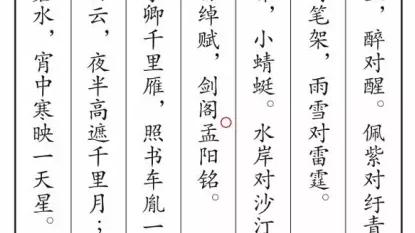 ，醉对醒。佩紫对纡青
笔架，雨雪对雷霆。
，小蜻蜓。水岸对沙汀
绰赋，剑阁孟阳铭。
卿千里雁，照书车胤一
云，夜半高遮千里月；
水，宵中寒映一天星。